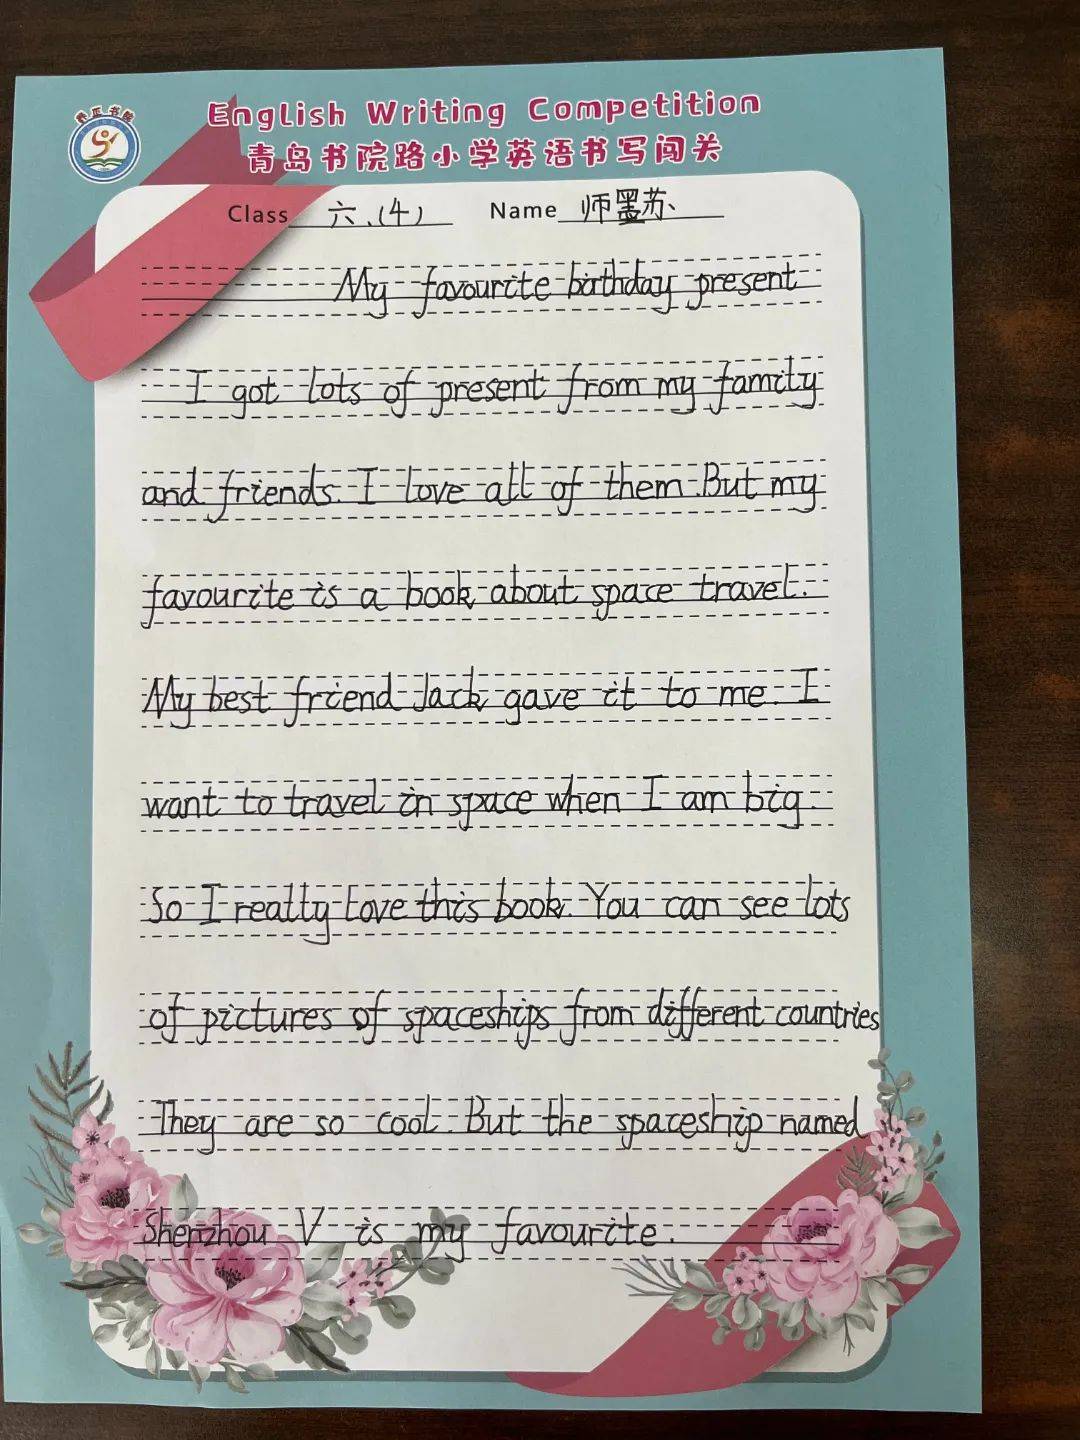 English Writing Competition
青岛书院路小学英语书写闯关
Class 六、(4) Name 师墨苏、
My favourite birthday present
I got lots of present from my family
and friends. I love all of them. But my
favourite is a book about space travel.
My best friend Jack gave it to me. I
want to travel in space when I am big.
So I really love this book. You can see lots
of pictures of spaceships from different countries
They are so cool. But the spaceship named
Shenzhou V is my favourite.